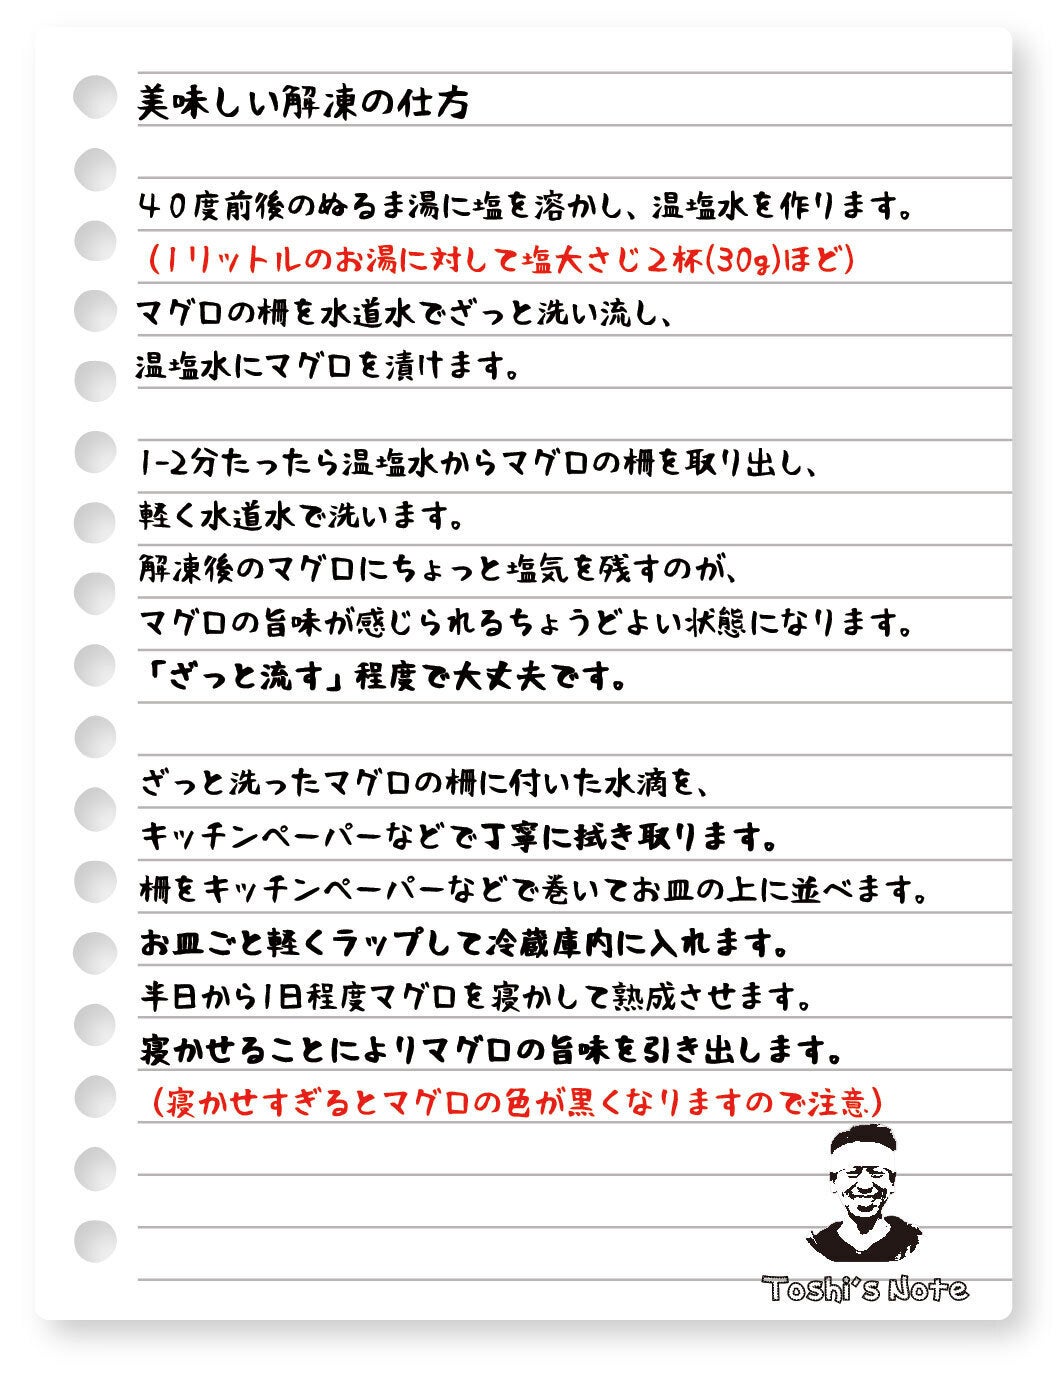 美味しい解凍の仕方
４０度前後のぬるま湯に塩を溶かし、温塩水を作ります。
（1リットルのお湯に対して塩大さじ２杯(30g)ほど）
マグロの柵を水道水でざっと洗い流し、
温塩水にマグロを漬けます。
1-2分たったら温塩水からマグロの柵を取り出し、
軽く水道水で洗います。
解凍後のマグロにちょっと塩気を残すのが、
マグロの旨味が感じられるちょうどよい状態になります。
「ざっと流す」程度で大丈夫です。
ざっと洗ったマグロの柵に付いた水滴を、
キッチンペーパーなどで丁寧に拭き取ります。
柵をキッチンペーパーなどで巻いてお皿の上に並べます。
お皿ごと軽くラップして冷蔵庫内に入れます。
半日から1日程度マグロを寝かして熟成させます。
寝かせることによりマグロの旨味を引き出します。
（寝かせすぎるとマグロの色が黒くなりますので注意）
Toshi's Note